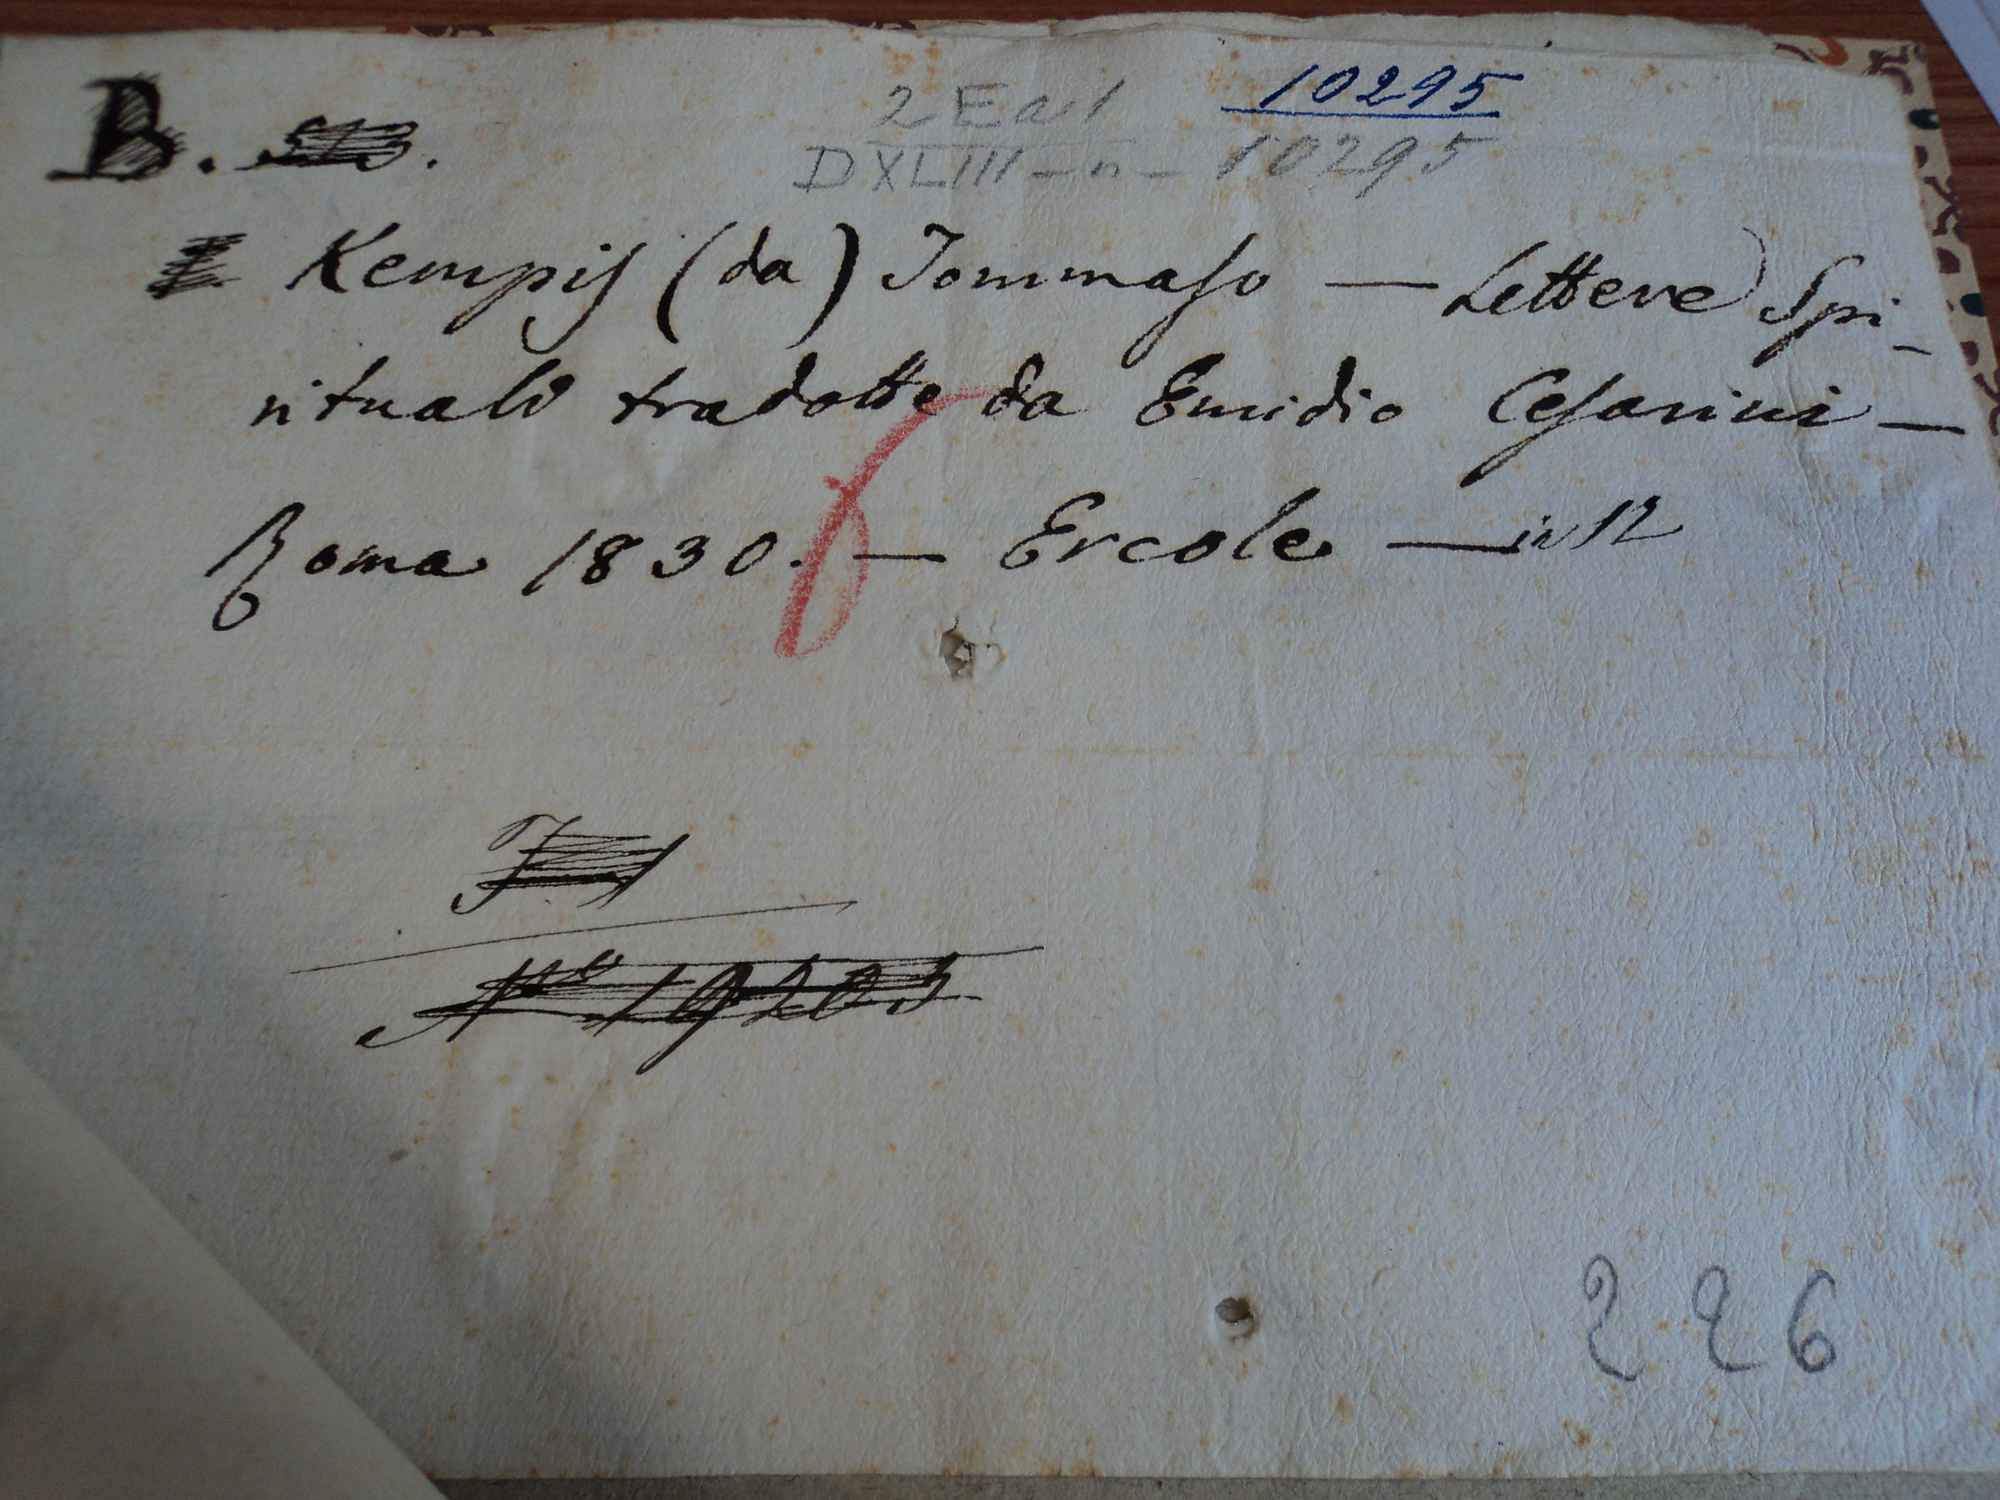 2 Ea 1 10295
B. DXLIII - n - 10295
Kempis (da) Tommaso — Lettere Spi-
rituali tradotte da Emidio Cesarini —
Roma 1830. — Ercole — in 12
226